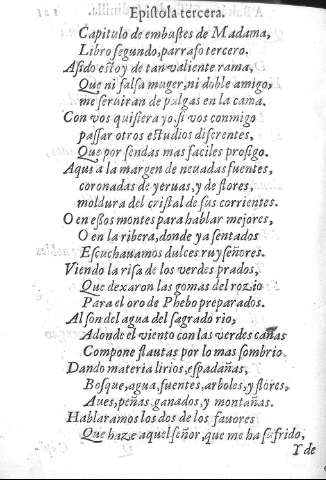 Epiſtola tercera.
Capitulo de embuſtes de Madama,
Libro ſegundo, parrafo tercero.
Aſido eſtoy de tan valiente rama,
Que ni falſa muger, ni doble amigo,
me ſeruiran de pulgas en la cama.
Con vos quiſiera yo, ſi vos conmigo
paſſar otros eſtudios diferentes,
Que por ſendas mas faciles proſigo.
Aqui a la margen de neuadas fuentes,
coronadas de yeruas, y de flores,
moldura del criſtal de ſus corrientes.
O en eſſos montes para hablar mejores,
O en la ribera, donde ya ſentados
Eſcuchauamos dulces ruyſeñores.
Viendo la riſa de los verdes prados,
Que dexaron las gomas del rozio
Para el oro de Phebo preparados.
Al ſon del agua del ſagrado rio,
Adonde el viento con las verdes cañas
Compone flautas por lo mas ſombrio.
Dando materia lirios, eſpadañas,
Boſque, agua, fuentes, arboles, y flores,
Aues, peñas, ganados, y montañas.
Hablaramos los dos de los fauores
Que haze aquel ſeñor, que me ha ſufrido,
Y de